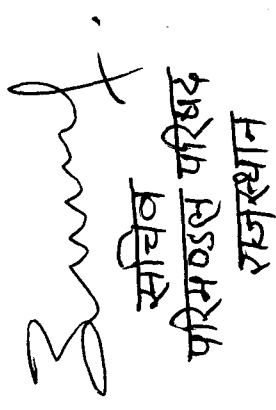 सचिव
परिमण्डल परिषद
राजस्थान